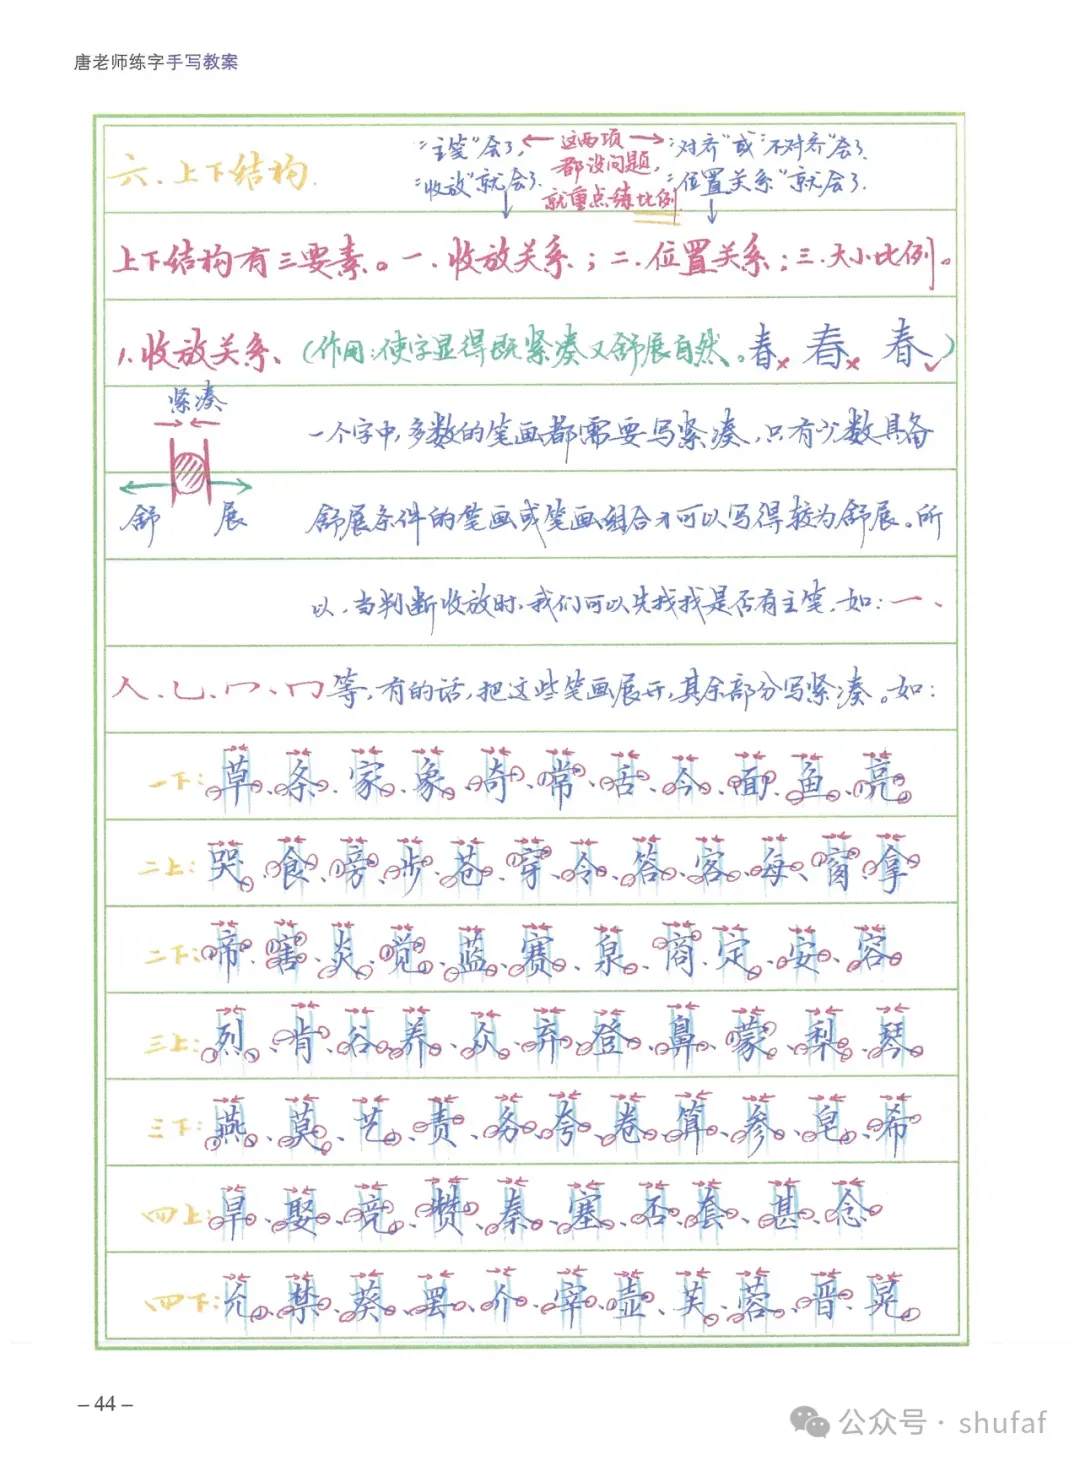 唐老师练字手写教案
六、上下结构
“主笔”会了,
“收放”就会了.
这两项
都没问题,
就重点练比例
“对齐”或“不对齐”会了.
“位置关系”就会了.
上下结构有三要素。一.收放关系;二.位置关系;三.大小比例。
1.收放关系、(作用:使字显得既紧凑又舒展自然。春×春×春✓)
紧凑
舒 展
一个字中,多数的笔画都需要写紧凑,只有少数具备
舒展条件的笔画或笔画组合才可以写得较为舒展。所
以,当判断收放时,我们可以先找找是否有主笔,如:一、
人、乚、冖、冂等,有的话,把这些笔画展开,其余部分写紧凑。如:
一下:草、条、家、象、奇、常、舌、今、面、鱼、亮
二上:哭、食、旁、步、苍、穿、令、答、客、每、窗、拿
二下:帝、害、炎、觉、蓝、赛、泉、商、定、安、容
三上:烈、肯、谷、养、众、弃、登、鼻、蒙、梨、琴
三下:燕、莫、艺、责、务、夸、卷、算、参、皂、希
四上:旱、娶、竞、赞、秦、塞、否、套、甚、念
四下:允、禁、葵、罢、介、宰、壶、芙、蓉、晋、晃
– 44 –
公众号 · shufaf